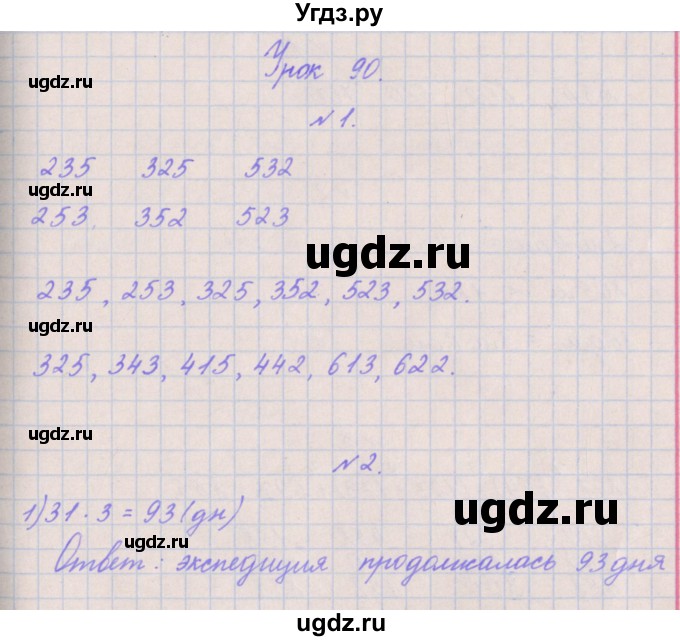 Угдз.ру
Урок 90.
ugdz.ru
№ 1.
235 325 532
ugdz.ru
253. 352 523
ugdz.ru
235, 253, 325, 352, 523, 532.
ugdz.ru
325, 343, 415, 442, 613, 622.
ugdz.ru
№ 2.
ugdz.ru
1) 31 · 3 = 93 (дн)
ugdz.ru
Ответ: экспедиция продолжалась 93 дня
ugdz.ru